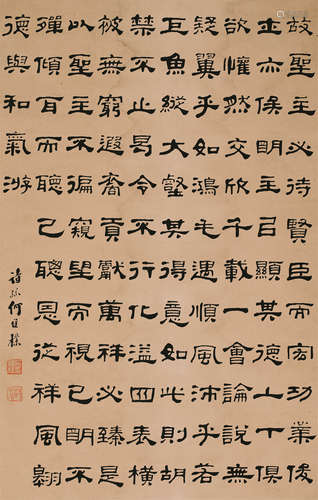 故聖主必待賢臣而宏功業俊
士亦俟明主㠯顯其德上下俱
欲懽然交欣千載一會論說無
疑翼乎如鴻毛遇順風沛乎若
巨魚縱大壑其得意如此則胡
禁不止曷令不行化溢四表橫
被無窮遐裔貢獻萬祥必臻是
以聖主不徧窺望而視已明不
殫傾耳而聽已聰恩從祥風翱
德與和氣游
詩孫何維樸